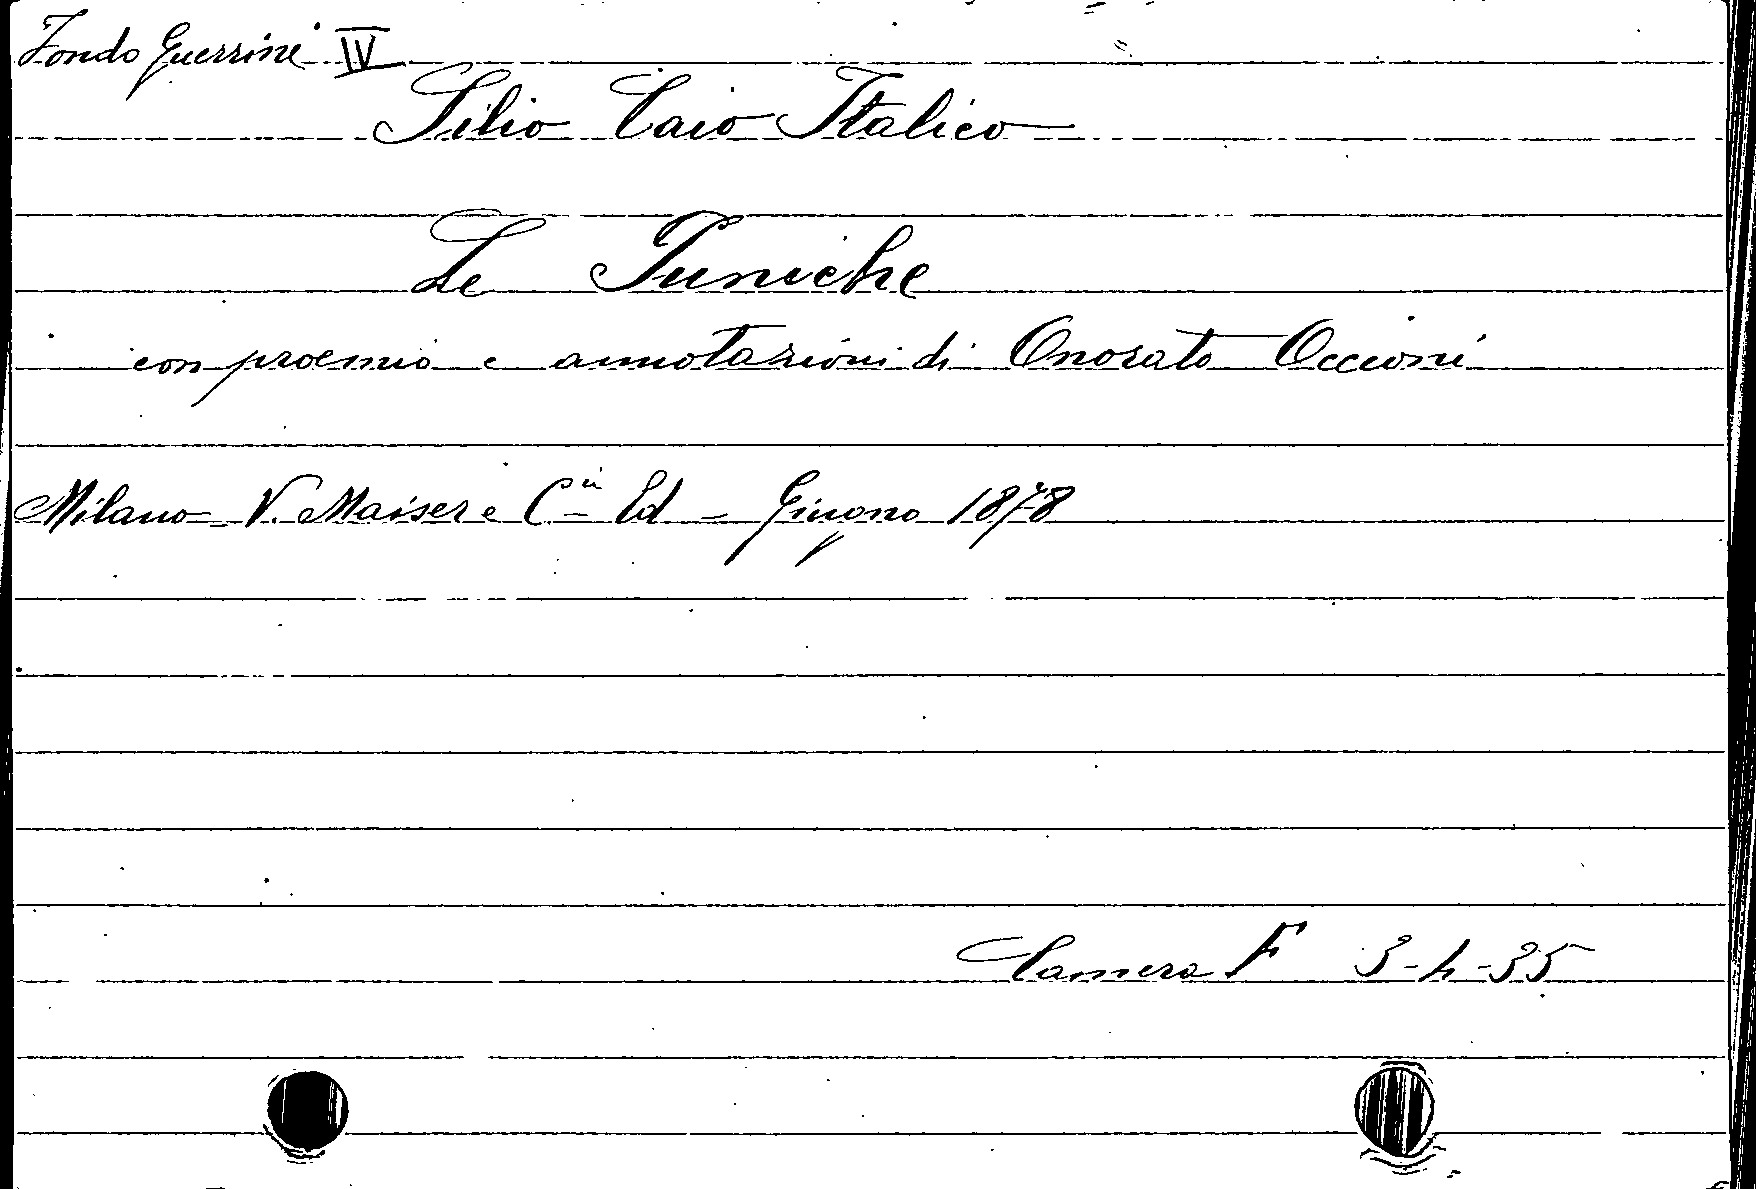 Fondo Guerrini IV
Silio Caio Italico
Le Puniche
con proemio e annotazioni di Onorato Occioni
Milano - V. Maiser e C.ia Ed - Giugno 1878
Camera F 3-4-35